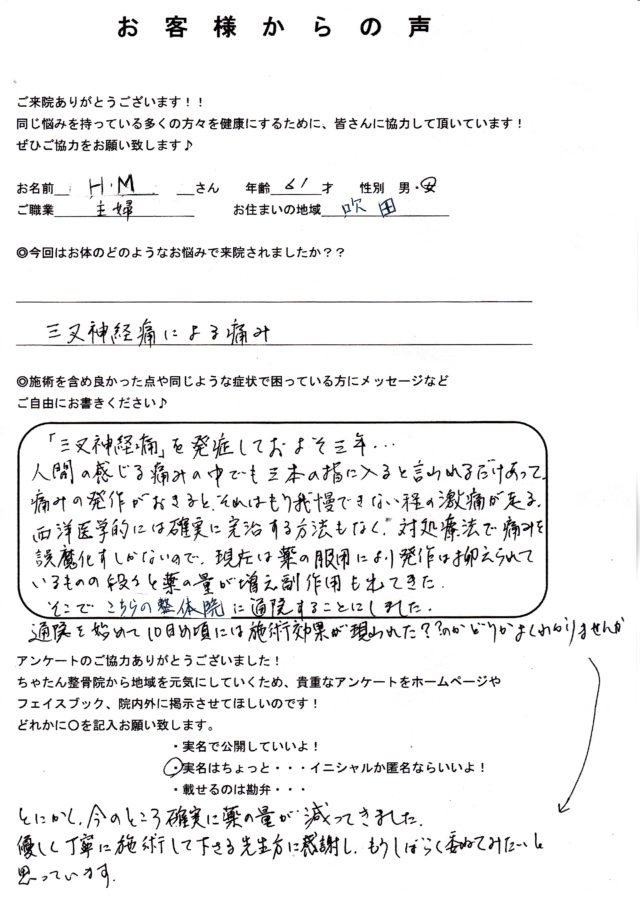 お客様からの声
ご来院ありがとうございます！！
同じ悩みを持っている多くの方々を健康にするために、皆さんに協力して頂いています！
ぜひご協力をお願い致します♪
お名前 H.M さん 年齢 61 才 性別 男・女
ご職業 主婦 お住まいの地域 吹田
◎今回はお体のどのようなお悩みで来院されましたか？？
三叉神経痛による痛み
◎施術を含め良かった点や同じような症状で困っている方にメッセージなど
ご自由にお書きください♪
「三叉神経痛」を発症しておよそ三年…
人間の感じる痛みの中でも三本の指に入ると言われるだけあって、
痛みの発作がおきると、それはもう我慢できない程の激痛が走る。
西洋医学的には確実に完治する方法もなく、対処療法で痛みを
誤魔化すしかないので、現在は薬の服用により発作は抑えられて
いるものの段々と薬の量が増え副作用も出てきた。
そこでこちらの整体院に通院することにしました。
通院を始めて10日め頃には施術効果が現われた??のかどうかよくわかりませんが
アンケートのご協力ありがとうございました！
ちゃたん整骨院から地域を元気にしていくため、貴重なアンケートをホームページや
フェイスブック、院内外に掲示させてほしいのです！
どれかに〇を記入お願い致します。
・実名で公開していいよ！
・実名はちょっと・・・イニシャルか匿名ならいいよ！
・載せるのは勘弁・・・
とにかく、今のところ確実に薬の量が減ってきました。
優しく丁寧に施術して下さる先生方に感謝し、もうしばらく委ねてみたいと
思っています。